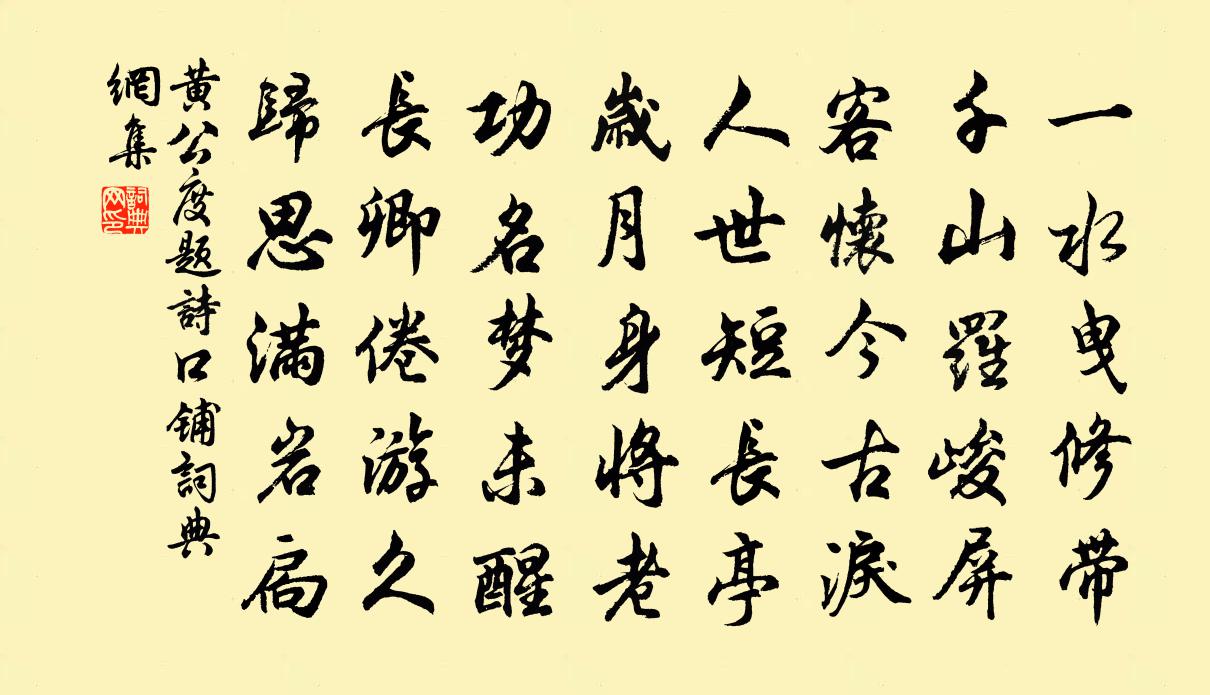 一水曳修帶
千山羅峻屏
客懷今古淚
人世短長亭
歲月身將老
功名梦未醒
長卿倦游久
歸思满岩扃
黄公度题詩口铺詞典
網集
詞典
网印